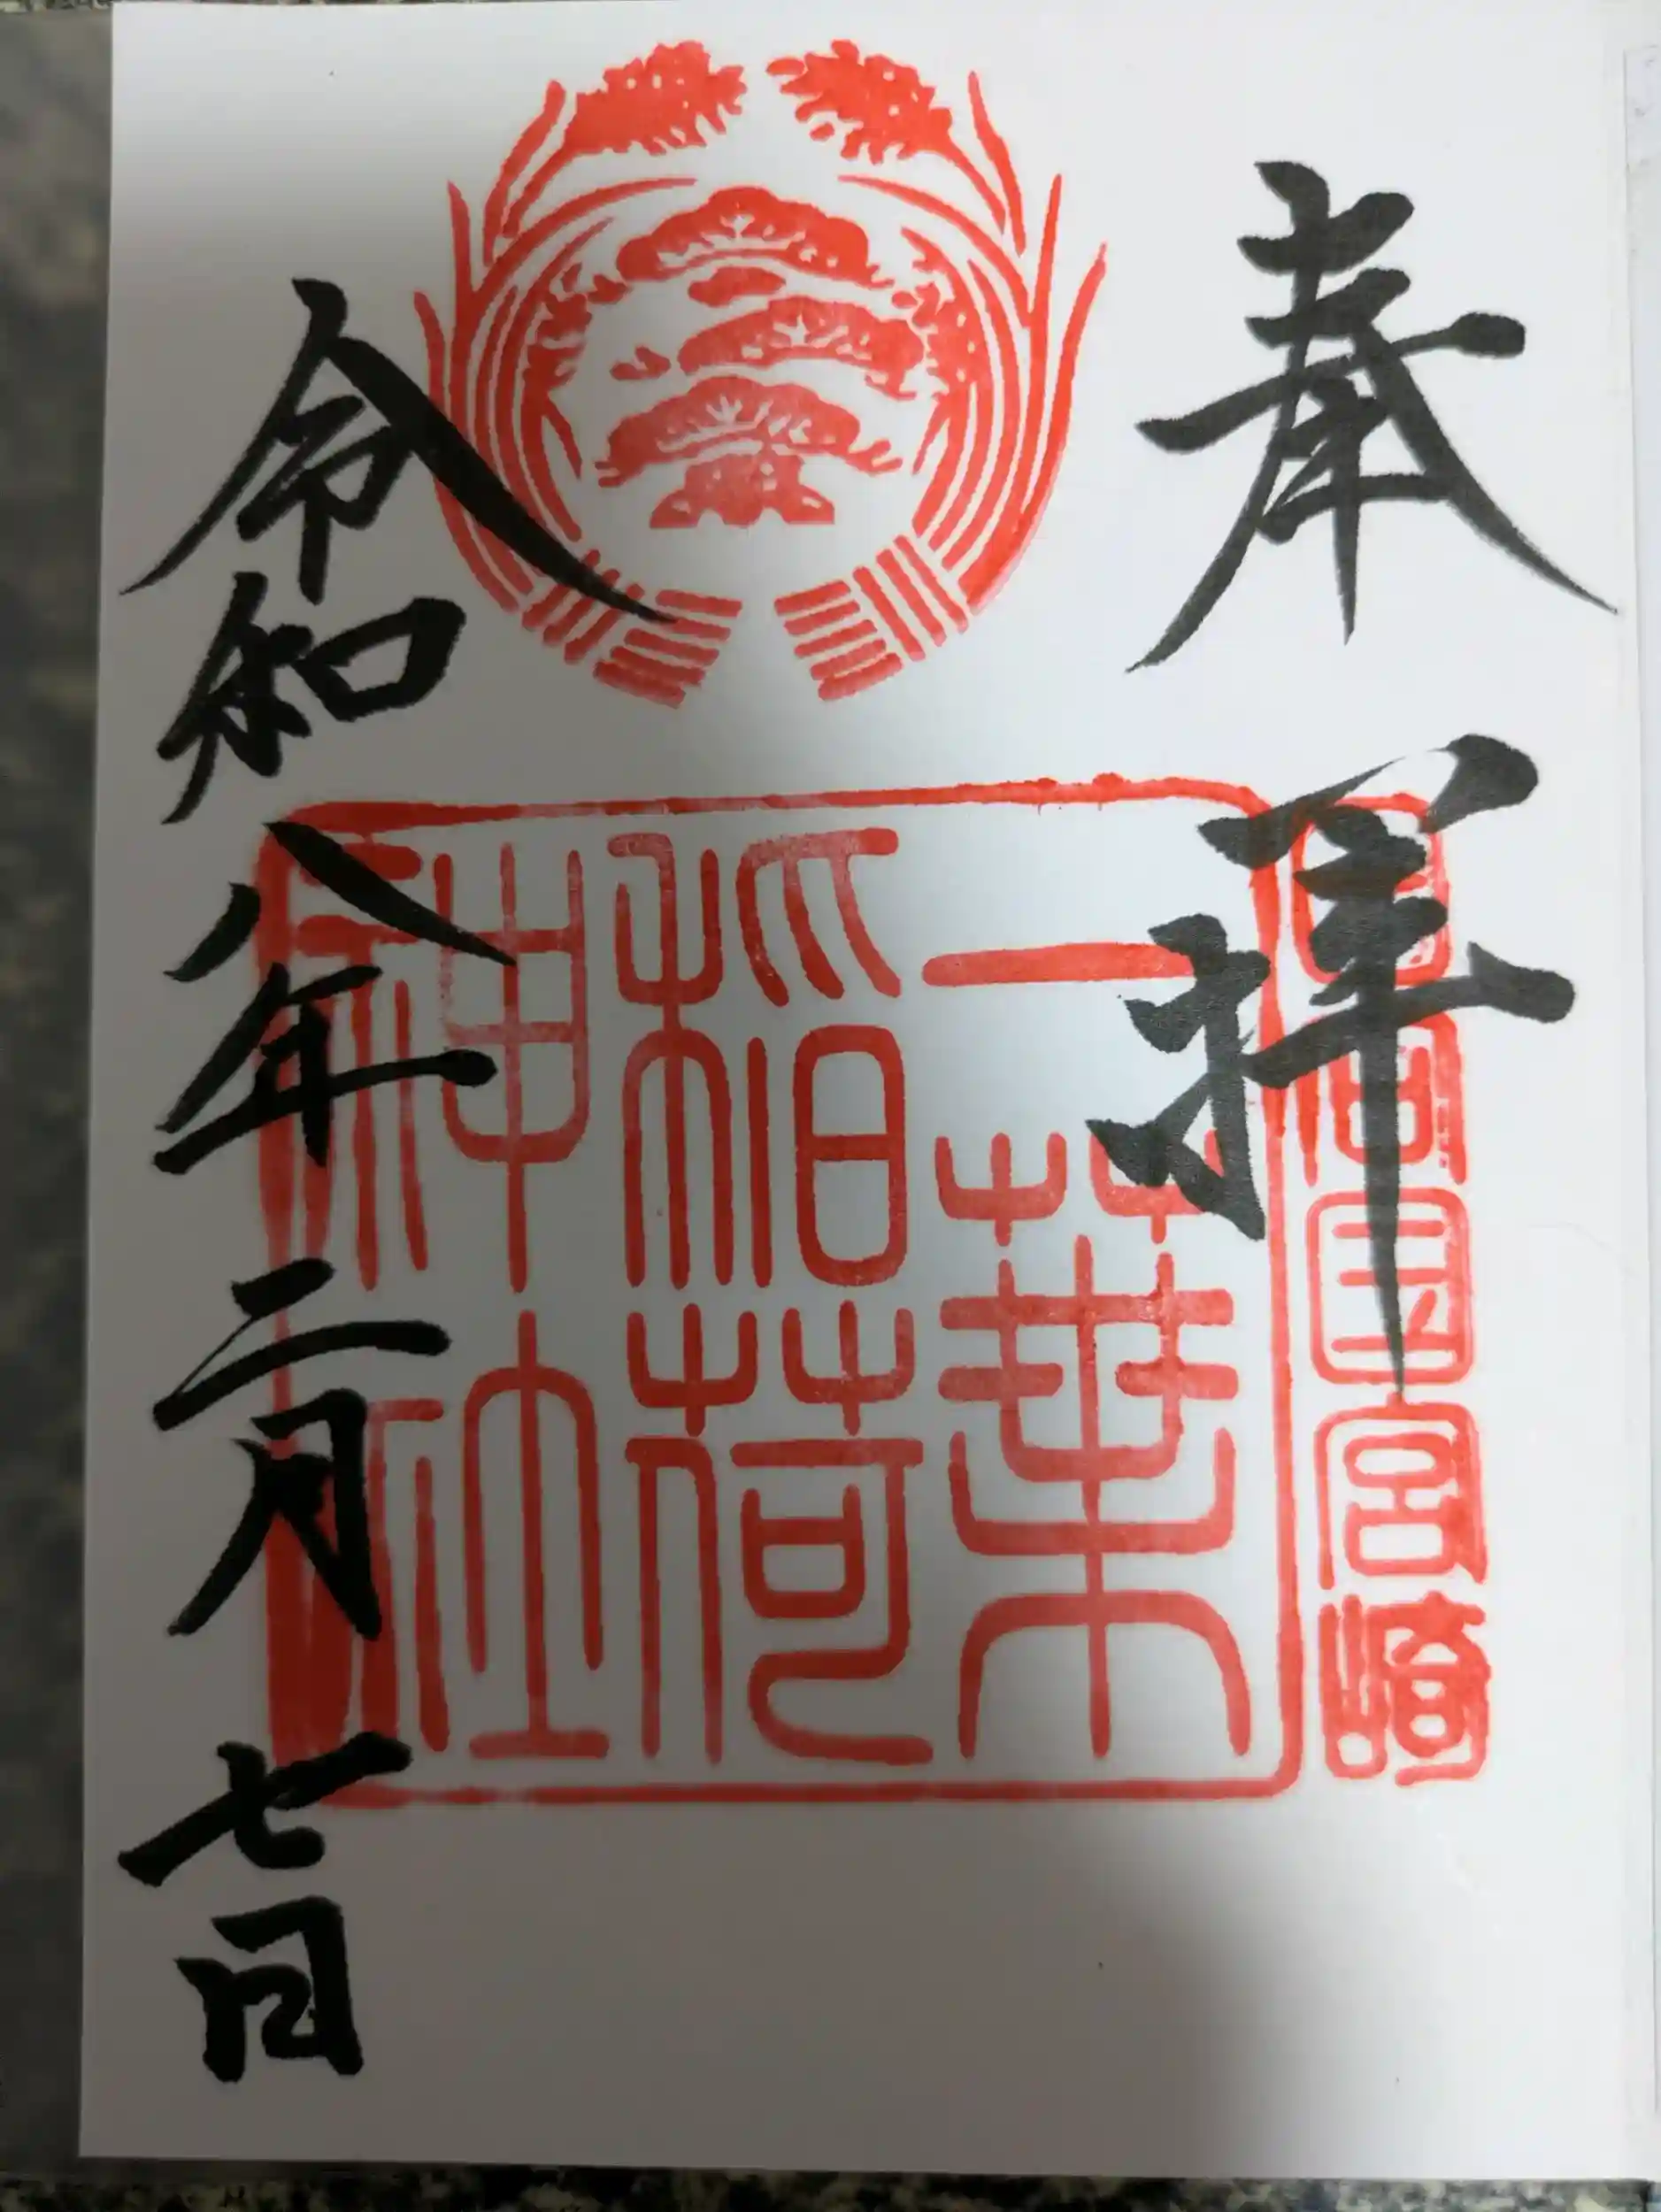 奉拝
日向国宮崎
一葉
稲荷
神社
令和八年二月七日